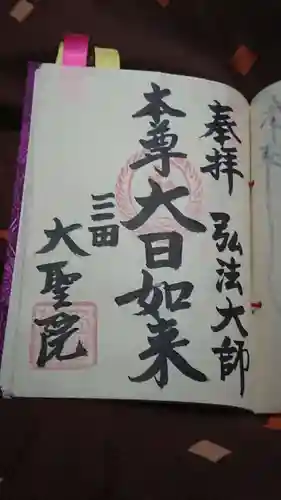 奉拝 弘法大師
本尊 大日如来
三田
大聖院